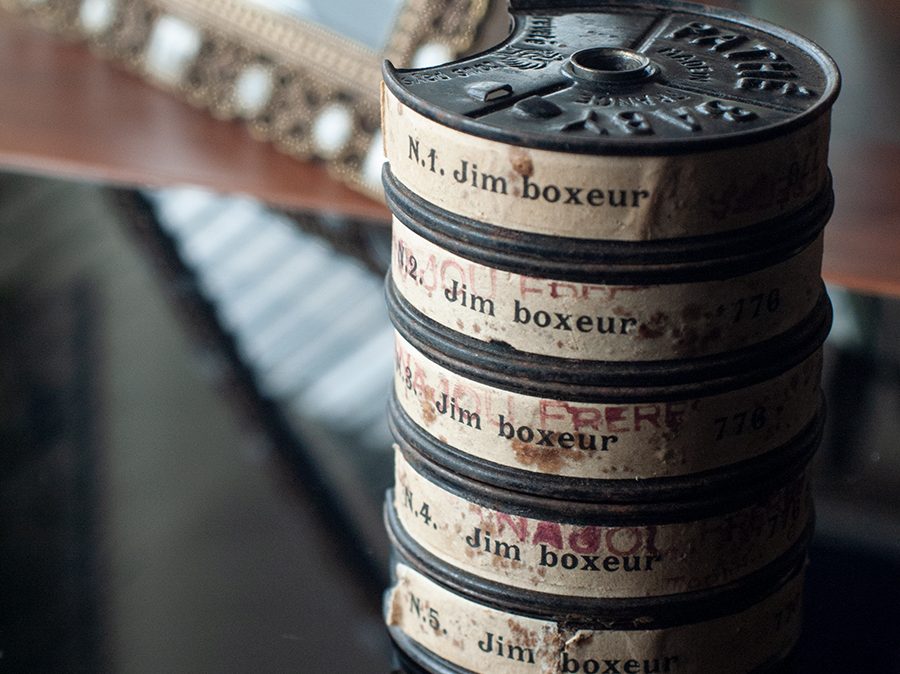 PATHÉ
BABY
FRANCE
N.1. Jim boxeur
N.2. Jim boxeur 776
N.3. Jim boxeur 776
FRERE
N.4. Jim boxeur
N.5. Jim boxeur